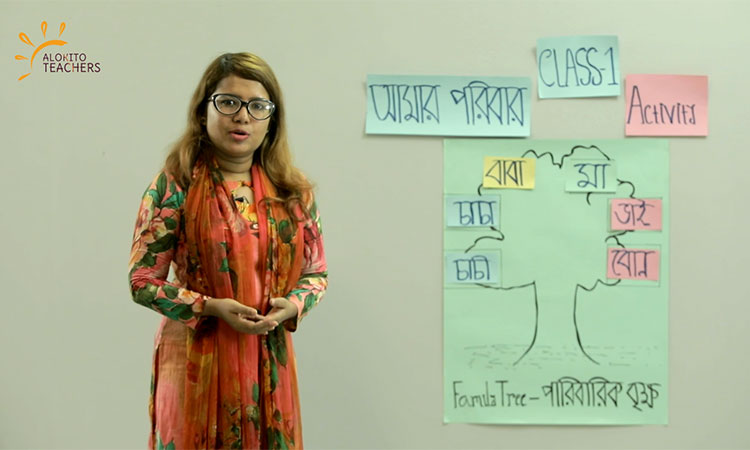 ALOKITO
TEACHERS
CLASS-1
আমার পরিবার
Activity
বাবা
মা
চাচা
ভাই
চাচী
বোন
Family Tree – পারিবারিক বৃক্ষ